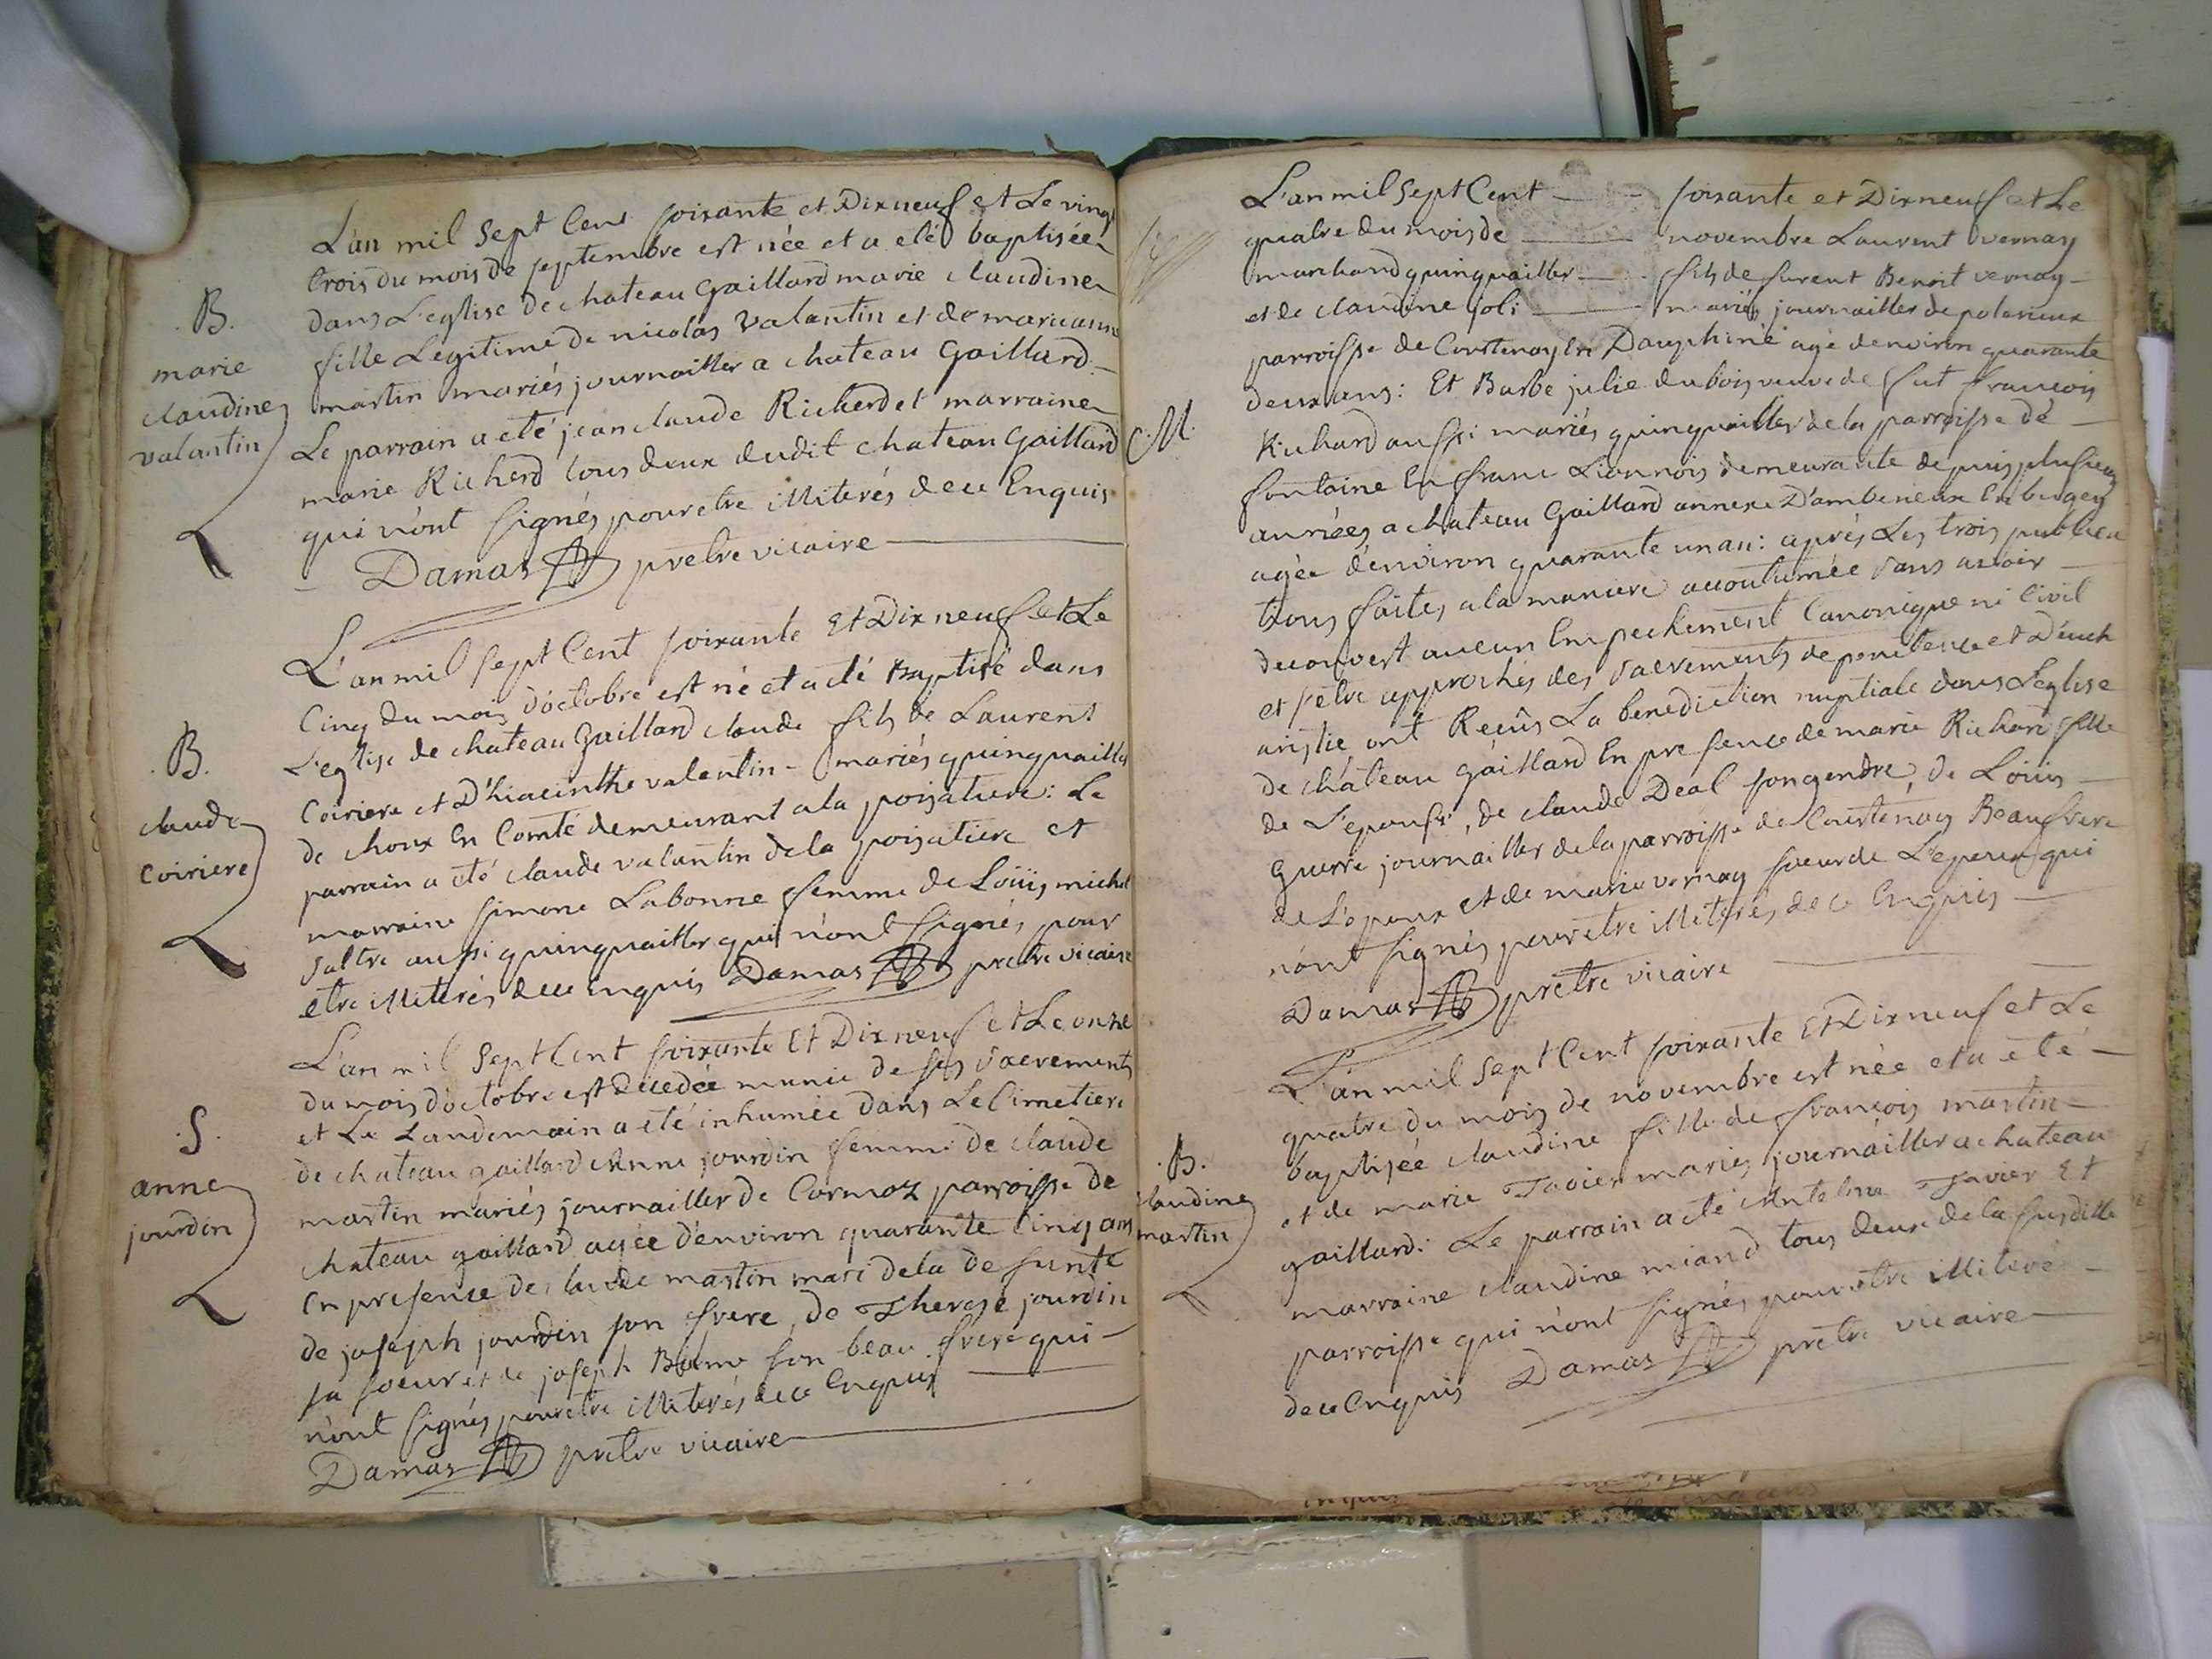 L'an mil Sept Cent soixante et Dix neuf et Le vingt
trois du mois de septembre est née et a eté baptisée
dans L'eglise de chateau Gaillard marie claudine
fille Legitime de nicolas Valantin et de marianne
martin mariés journailler a chateau Gaillard
Le parrain a eté jean claude Richerd et marraine
marie Richerd tous deux dudit chateau Gaillard
qui n'ont signés pour etre illiterés de ce Enquis
Damas prétre vicaire
B.
marie
claudine
valantin
L'an mil sept Cent soixante Et Dix neuf et Le
Cinq du mois d'octobre est né et a eté Baptisé dans
L'eglise de chateau Gaillard claude fils de Laurent
Coiriere et D'hiacinthe valentin - mariés quinquailler
de choux En Comté demeurant a la poisatiere: Le
parrain a été claude valantin de la poisatiere et
marraine simone Labonne femme de Loüis michel
saltre aussi quinquailler qui n'ont signés pour
etre illiterés de ce Enquis Damas pretre vicaire
B.
claude
Coiriere
L'an mil Sept Cent soixante Et Dix neuf et Le onze
du mois d'octobre est Decedée munie de ses sacrements
et Le Landemain a eté inhumée dans Le Cimetiere
de chateau gaillard Anne jourdin femme de claude
martin mariés journailler de Cormoz parroisse de
chateau gaillard agée d'environ quarante Cinq ans
En presence de claude martin mari de la defunte
de joseph jourdin son frere, de Therese jourdin
sa soeur et de joseph son beau frere qui
n'ont signés pour etre illiterés de ce Enquis
Damas pretre vicaire
S.
anne
jourdin
L'an mil Sept Cent soixante et Dix neuf et Le
quatre du mois de novembre Laurent vernay
marchand quinquailler fils de furent Benoit vernay
et de claudine joli mariés journailler de polenieux
parroisse de Courtenay En Dauphiné agé d'environ quarante
deux ans: Et Barbe julie dubois veuve de fut francois
Richard aussi mariés quinquailler de la parroisse de
fontaine En franc Lionnois demeurante depuis plusieurs
années a chateau Gaillard annexe D'amberieux En bugey
agée d'environ quarante un an: après Les trois publica
tions faites a la maniere accoutumée sans avoir
decouvert aucun Empechement Canonique ni Civil
et s'etre approchés des sacrements de penitence et d'euch
aristie ont Reçûs La benediction nuptiale dans L'eglise
de chateau gaillard En presence de marie Richard fille
de L'epouse, de claude Deal son gendre, de Loüis
guerre journailler de la parroisse de Courtenay Beaufrere
de L'epoux et de marie vernay soeur de L'epoux qui
n'ont signés pour etre illiterés de ce Enquis
Damas prétre vicaire
M.
L'an mil Sept Cent soixante Et Dix neuf et Le
quatre du mois de novembre est née et a eté
baptisée claudine fille de françois martin
et de marie Tavier mariés journailler a chateau
gaillard: Le parrain a eté Antelme Tavier Et
marraine claudine miand tous deux de la susditte
parroisse qui n'ont signés pour etre illiterés
de ce Enquis Damas prétre vicaire
B.
claudine
martin